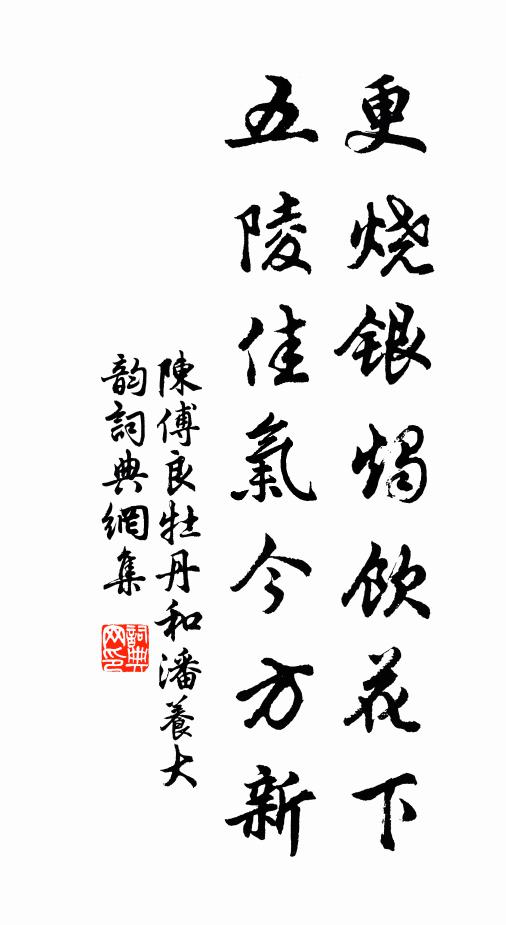 更烧银燭飲花下
五陵佳氣今方新
陳傅良牡丹和潘養大
韵詞典網集
詞典網印